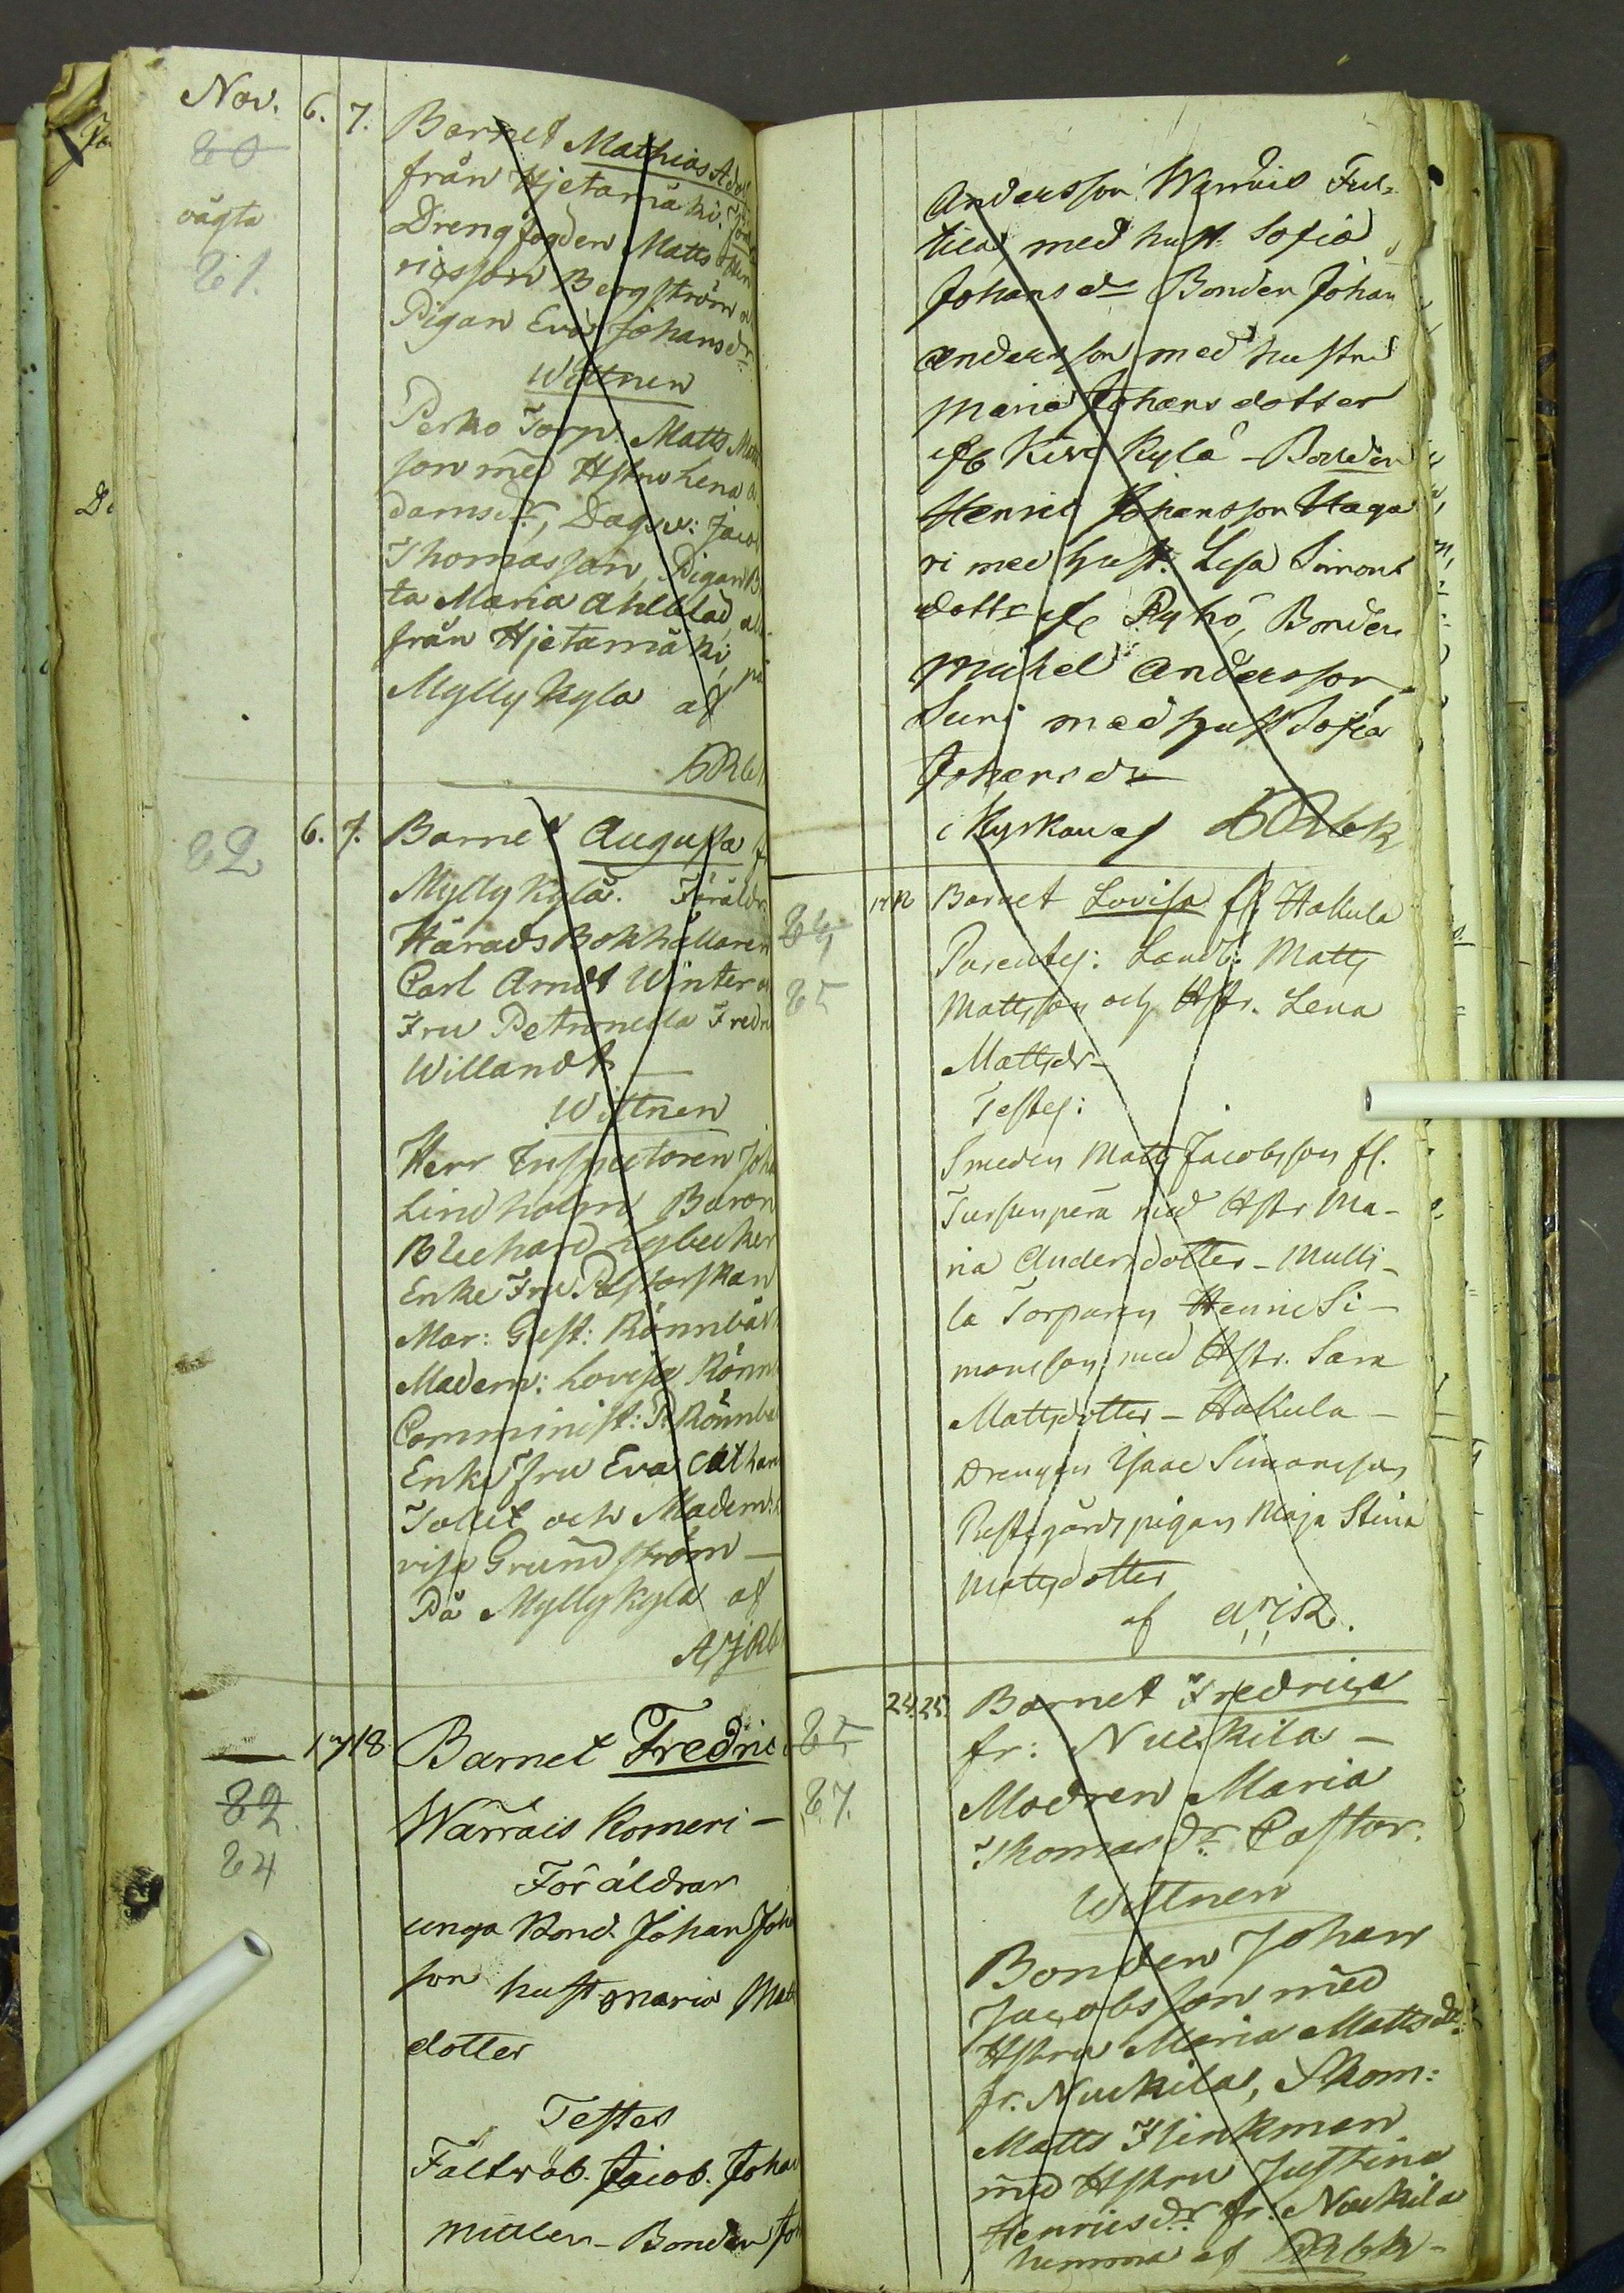 Nov. 6. 7. Barnet Mathias Ad
80
från Hjetamäki. För
oägta
Dreng fogden Matts Hen
81.
ricsson Bergström
Pigan Eva Johansdr
Wittnen
Perko Torp. Matts
son med Hstru Lena A
damsdr, Dagsv: Jaco
Thomasson, Pigan B
ta Maria Ahlblad,
från Hjetamäki,
Mylly Kyla af
82 6. 7. Barnet Augusta f
Mylly Kylä. Föräldr
Härads Bokhållaren
Carl Arndt Winter
Fru Petronella Fredr
Willandt
Wittnen
Herr Inspectoren Joha
Lindholm, Baron
Lybecker
Enke Fru Pastorskan
Mar: Gust: Rönnbäck
Madem: Lovisa Rönn
Comminist: P. Rönnba
Enke fru Eva Cathar
Tollit och Madem:
visa Grundström
På Myllykyla af
AJRb
17 18 Barnet Fredric
82. Warrais Komeri
84
Föräldrar
unga Bond. Johan Joh
son hust Maria Mat
dotter
Testes
Fältwäb. Jacob. Johan
Müller - Bonden Joh
Andersson Warrais
tila med hust. Sofia
Johansdr Bonden Johan
Andersson med hustru
Maria Johans dotter
fr Kivi Kylä - Bonden
Henric Johansson Haga
ri med hust. Lisa Simons
dottr fr Ryhö, Bonden
Michel Andersson
Suni med hust Sofia
Johansdr
i Kyrkan af
84 17 18 Barnet Lovisa fr. Hakula
Parentes: Landb: Matts
85 Mattsson och Hstr. Lena
Mattsdr
Testes:
Smeden Matts Jacobsson fr.
Tursunperä med Hstr Ma-
ria Andersdotter - Mulli-
la Torparen Henric Si-
monsson med Hstr. Sara
Mattsdotter - Hakula -
Drengen Isaac Simonsson
Prestgårds pigan Maja Stina
Mattsdotter
af
85 24. 25. Barnet Fredrica
fr: Nuckila -
87. Modren Maria
Thomasdr Castor.
Wittnen
Bonden Johan
Jacobsson med
Hstru Maria Mattsdr
fr. Nuckila, Skom:
Matts Flinkman
med Hstru Justina
Henricsdr fr: Nuckila
hemma af